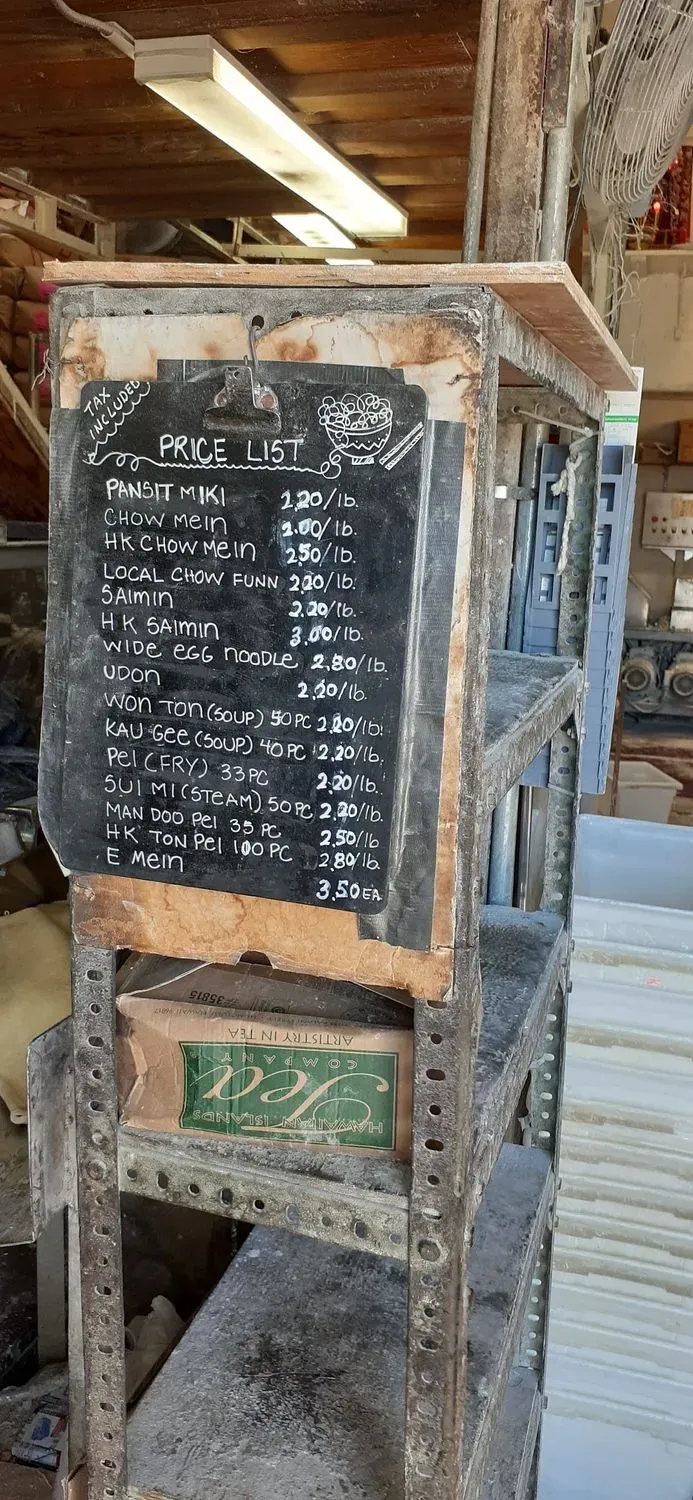 TAX
INCLUDED
PRICE LIST
PANSIT MIKI 2.20/lb.
CHOW MEIN 2.00/lb.
HK CHOW MEIN 2.50/lb.
LOCAL CHOW FUNN 2.20/lb.
SAIMIN 2.20/lb.
HK SAIMIN 3.00/lb.
WIDE EGG NOODLE 2.80/lb.
UDON 2.20/lb.
WON TON (SOUP) 50 PC 2.20/lb.
KAU GEE (SOUP) 40 PC 2.20/lb.
PEI (FRY) 33 PC 2.20/lb.
SUI MI (STEAM) 50 PC 2.20/lb.
MAN DOO PEI 35 PC 2.50/lb
HK TON PEI 100 PC 2.80/lb
E MEIN 3.50 EA
HAWAIIAN ISLANDS
Tea
COMPANY
ARTISTRY IN TEA
#35815